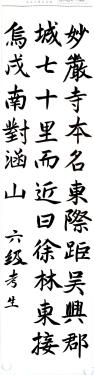 妙嚴寺本名東際距吳興郡
城七十里而近曰徐林東接
烏戍南對涵山
六級考生